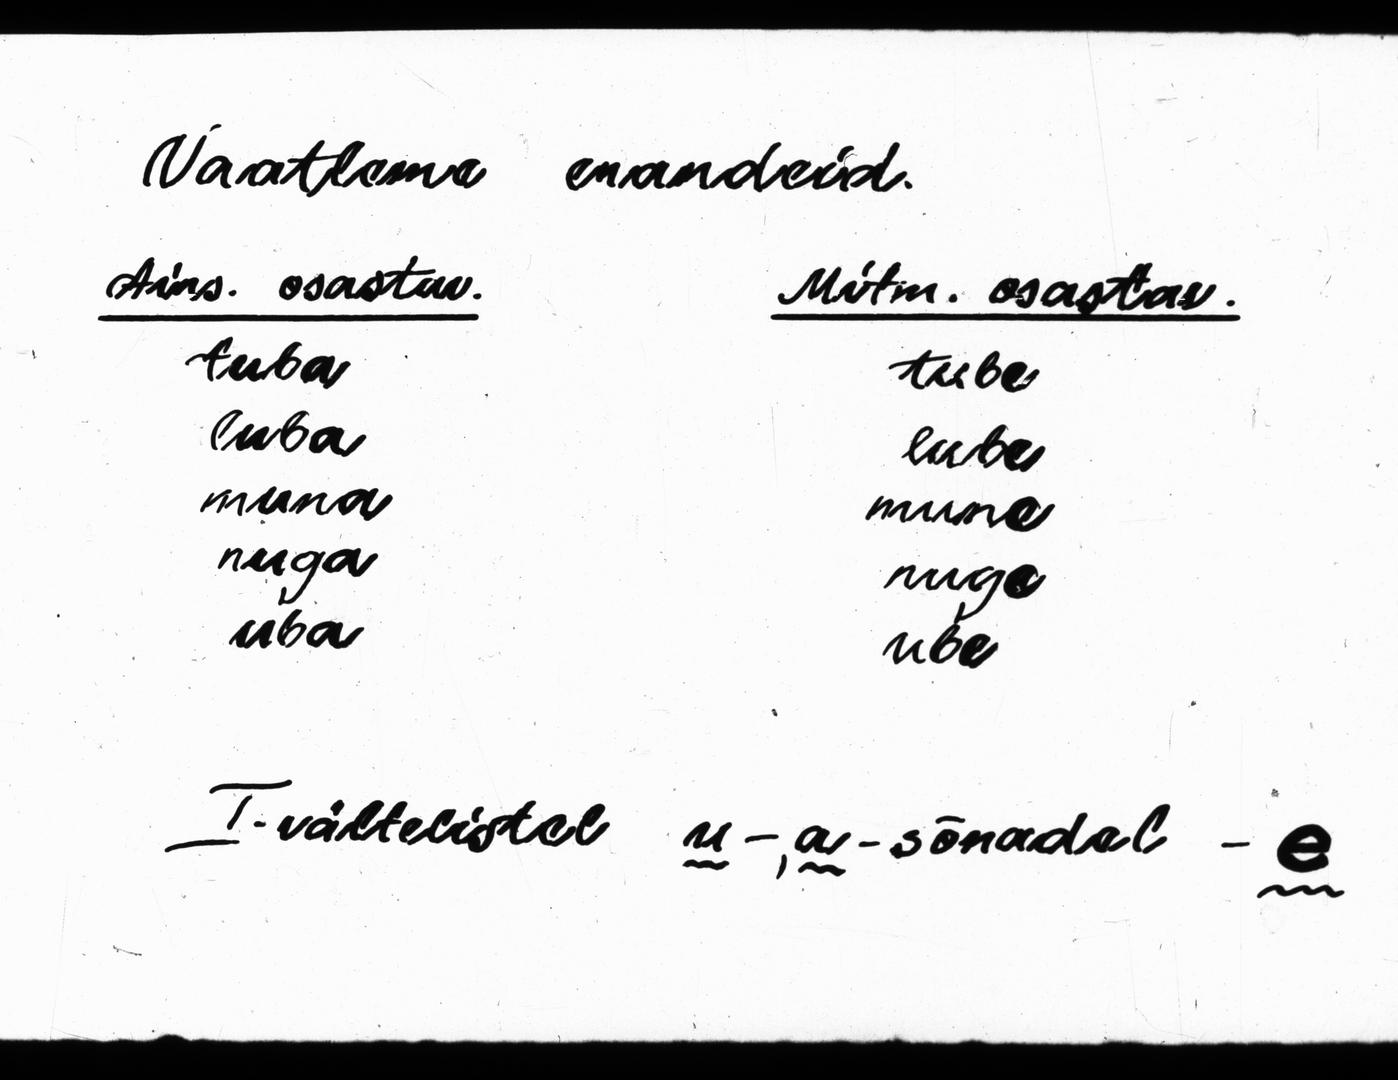 Vaatleme enandeid.
Ains. osastav. Mitm. osastav.
tuba tube
luba lube
muna mune
nuga nuge
uba ube
I-vältelistel u-, a-sõnadel - e